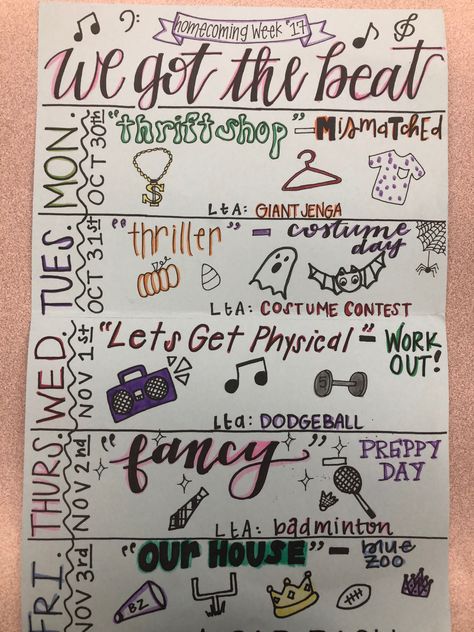 homecoming Week '17
we got the beat
MON. OCT 30th
"thrift shop" - MISMATCHED
$
LtA: GIANT JENGA
TUES. OCT 31st
"thriller" - costume day
LtA: COSTUME CONTEST
WED. NOV 1st
"LETS GET PHYSICAL" - WORK OUT!
Lta: DODGEBALL
THURS. NOV 2nd
"fancy" - PREPPY DAY
LtA: badminton
FRI. NOV 3rd
"OUR HOUSE" - blue zoo
BZ